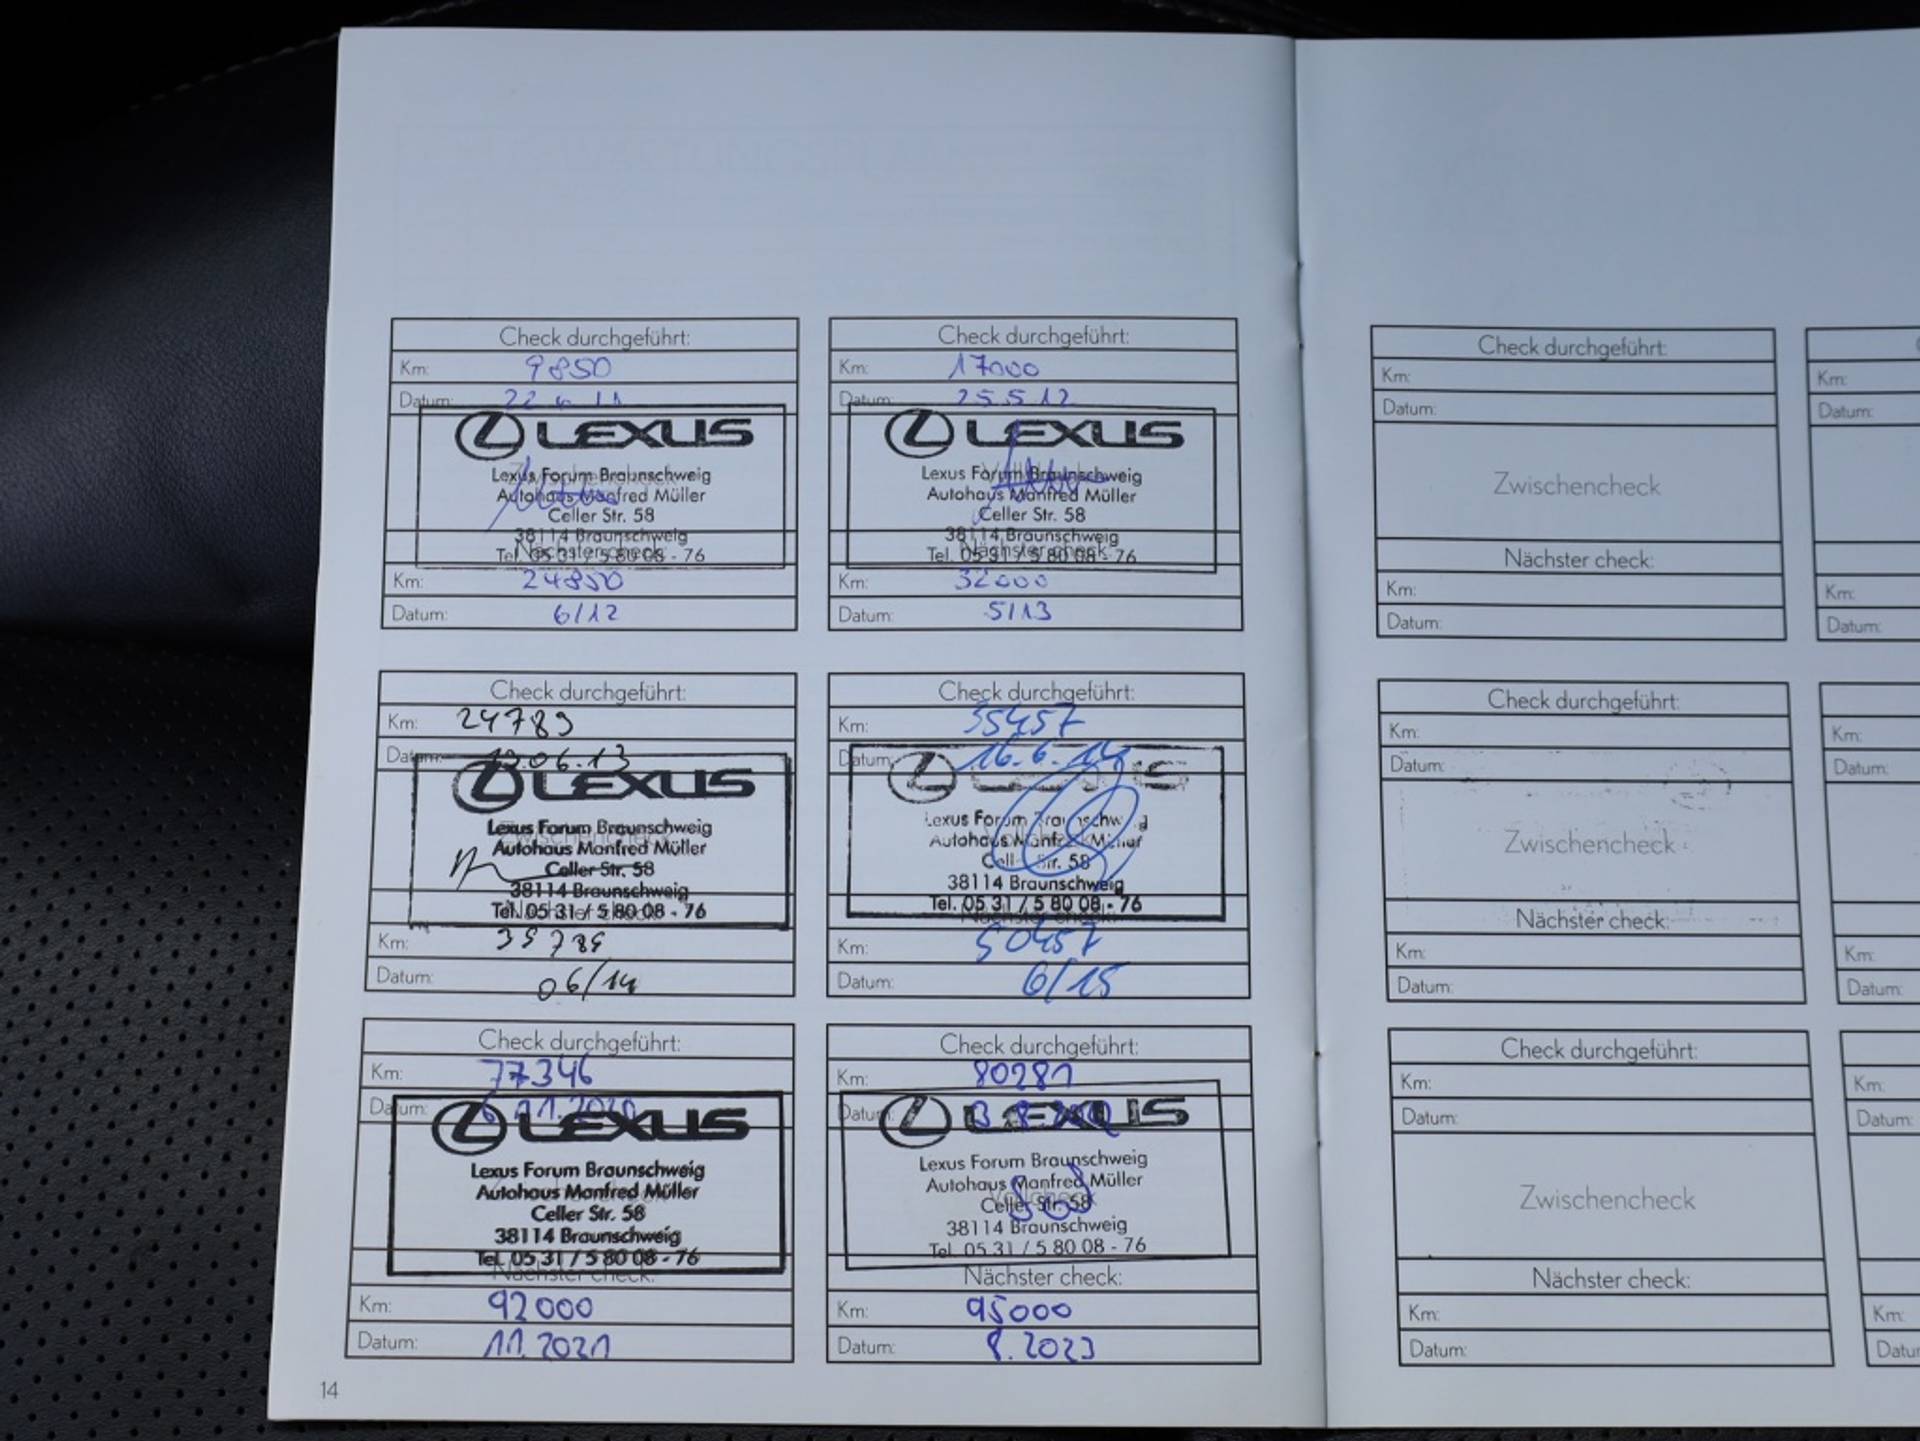 Check durchgeführt:
Km: 9850
Datum: 22
LEXUS
Lexus Forum Braunschweig
Autohaus Manfred Müller
Celler Str. 58
38114 Braunschweig
Nächster check:
Tel. 05 31 / 5 80 08 - 76
Km: 24850
Datum: 6/12
Check durchgeführt:
Km: 17000
Datum: 25.5.12
LEXUS
Lexus Forum Braunschweig
Autohaus Manfred Müller
Celler Str. 58
38114 Braunschweig
Nächster check:
Tel. 05 31 / 5 80 08 - 76
Km: 32000
Datum: 5/13
Check durchgeführt:
Km: 24789
Datum: 06.13
LEXUS
Lexus Forum Braunschweig
Zwischencheck
Autohaus Manfred Müller
Celler Str. 58
38114 Braunschweig
Tel. 05 31 / 5 80 08 - 76
Nächster check:
Km: 39789
Datum: 06/14
Check durchgeführt:
Km: 35457
Datum: 16.6.14
LEXUS
Lexus Forum Braunschweig
Autohaus Manfred Müller
Celler Str. 58
38114 Braunschweig
Tel. 05 31 / 5 80 08 - 76
Nächster check:
Km: 50457
Datum: 6/15
Check durchgeführt:
Km: 77346
Datum: 11.2020
LEXUS
Lexus Forum Braunschweig
Autohaus Manfred Müller
Celler Str. 58
38114 Braunschweig
Tel. 05 31 / 5 80 08 - 76
Nächster check:
Km: 92000
Datum: 11.2021
Check durchgeführt:
Km: 80281
Datum:
LEXUS
Lexus Forum Braunschweig
Autohaus Manfred Müller
Vollcheck
Celler Str. 58
38114 Braunschweig
Tel. 05 31 / 5 80 08 - 76
Nächster check:
Km: 95000
Datum: 8.2023
14
Check durchgeführt:
Km:
Datum:
Zwischencheck
Nächster check:
Km:
Datum:
Km:
Datum:
Km:
Datum:
Check durchgeführt:
Km:
Datum:
Zwischencheck
Nächster check:
Km:
Datum:
Km:
Datum:
Km:
Datum:
Check durchgeführt:
Km:
Datum:
Zwischencheck
Nächster check:
Km:
Datum:
Km:
Datum:
Km: